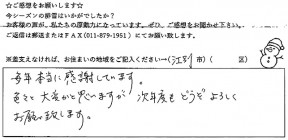 ☆ご感想をお願いします☆
今シーズンの除雪はいかがでしたか？
お客様の声が、私たちの原動力になっています。ぜひ、ご感想をお聞かせ下さい。
ご返信は郵送またはFAX(011-879-1951)にてお願い致します。
※差支えなければ、お住まいの地域をご記入ください→(江別市)( 区)
毎年本当に感謝しています。
色々と大変かと思いますが次年度もどうぞよろしく
お願い致します。